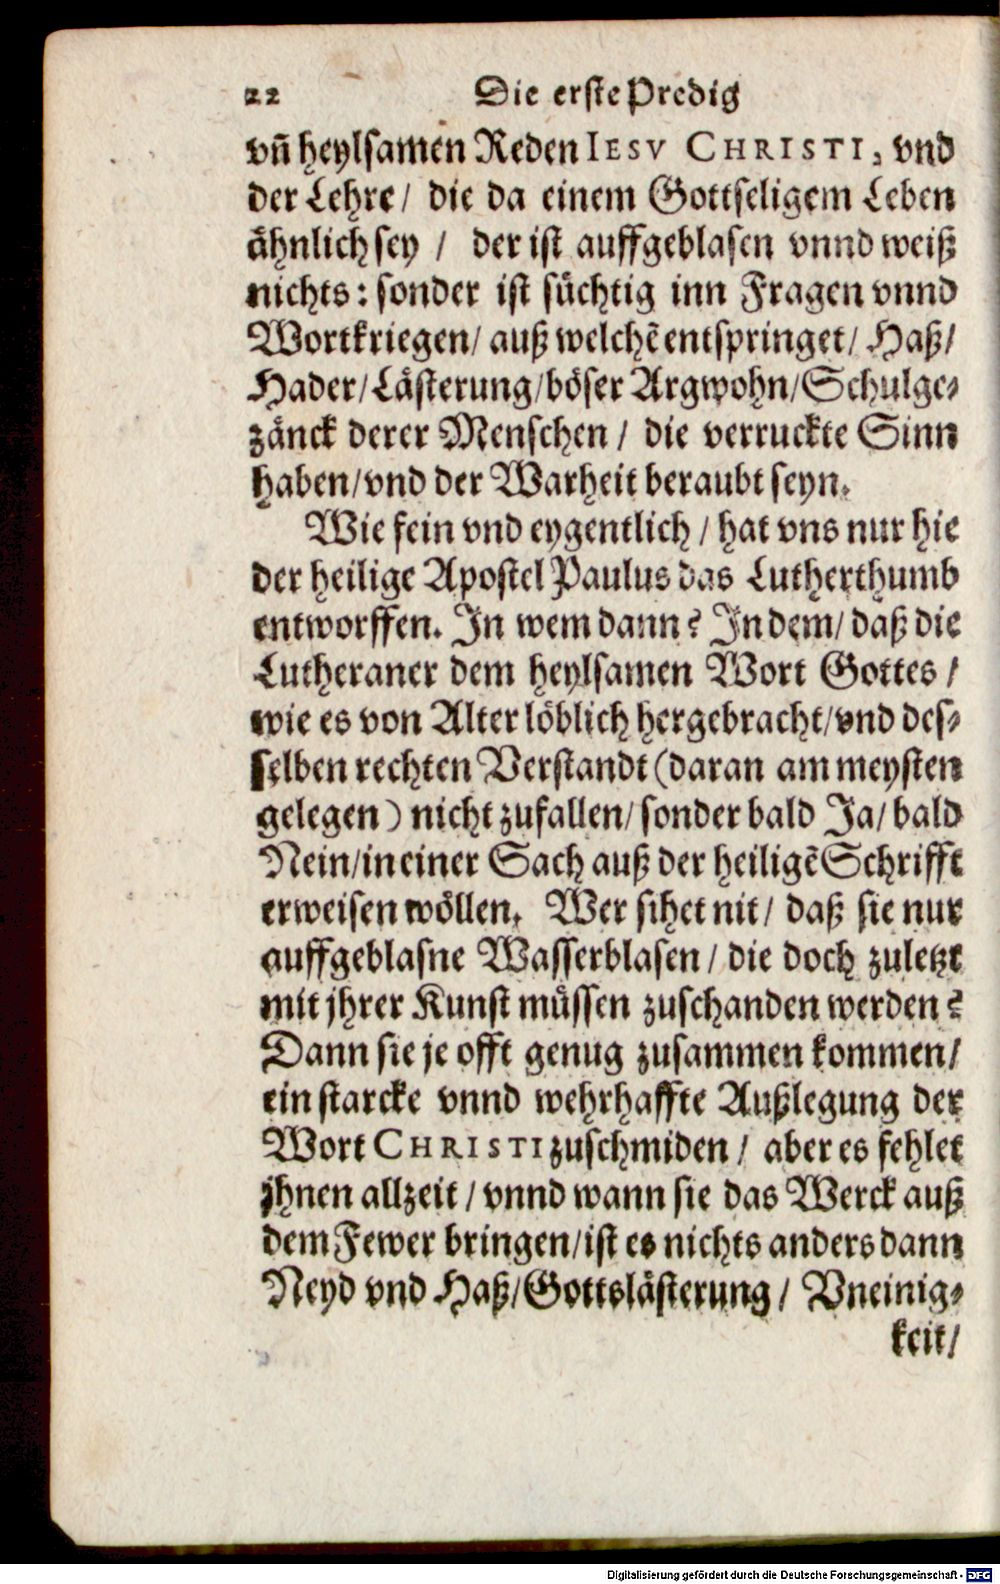 22 Die erste Predig
vñ heylsamen Reden IESV CHRISTI, vnd
der Lehre/ die da einem Gottseligem Leben
ähnlich sey / der ist auffgeblasen vnnd weiß
nichts: sonder ist süchtig inn Fragen vnnd
Wortkriegen/ auß welchẽ entspringet/ Haß/
Hader/Lästerung/böser Argwohn/Schulge-
zänck derer Menschen / die verruckte Sinn
haben/vnd der Warheit beraubt seyn.
Wie fein vnd eygentlich / hat vns nur hie
der heilige Apostel Paulus das Lutherthumb
entworffen. In wem dann? In dem/ daß die
Lutheraner dem heylsamen Wort Gottes /
wie es von Alter löblich hergebracht/vnd des-
selben rechten Verstandt (daran am meysten
gelegen) nicht zufallen/ sonder bald Ja/ bald
Nein/in einer Sach auß der heiligẽ Schrifft
erweisen wöllen. Wer sihet nit/ daß sie nur
auffgeblasne Wasserblasen / die doch zuletzt
mit jhrer Kunst müssen zuschanden werden?
Dann sie je offt genug zusammen kommen/
ein starcke vnnd wehrhaffte Außlegung der
Wort CHRISTI zuschmiden / aber es fehlet
jhnen allzeit / vnnd wann sie das Werck auß
dem Fewer bringen/ist es nichts anders dann
Neyd vnd Haß/Gottslästerung / Vneinig-
keit/
Digitalisierung gefördert durch die Deutsche Forschungsgemeinschaft - DFG